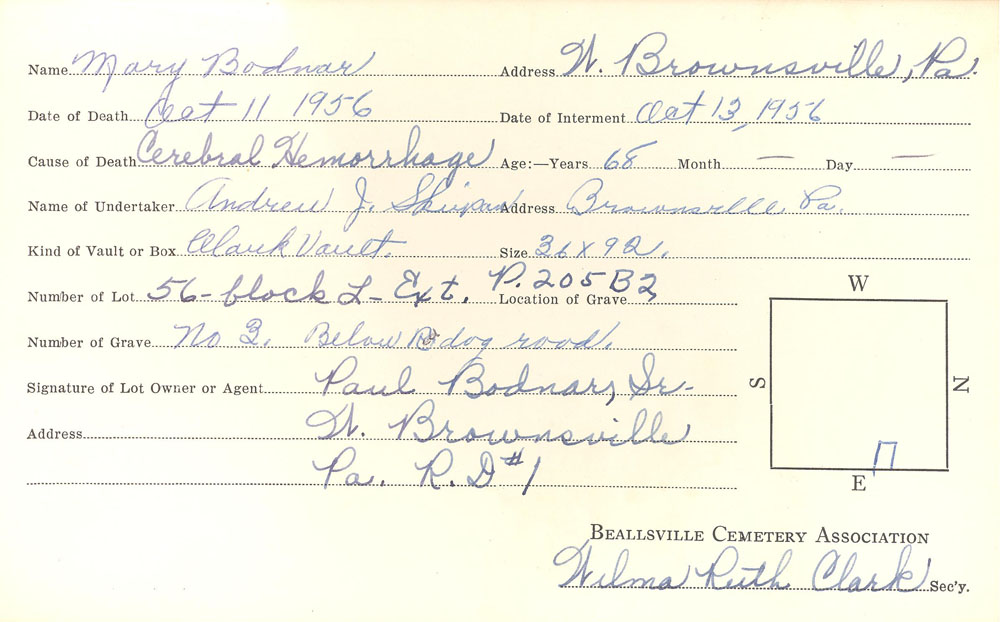 Name Mary Bodnar Address W. Brownsville, Pa.
Date of Death Oct 11 1956 Date of Interment Oct 13, 1956
Cause of Death Cerebral Hemorrhage Age:—Years 68 Month — Day —
Name of Undertaker Andrew J. Address Brownsville Pa.
Kind of Vault or Box Clark Vault. Size 36 x 92.
Number of Lot 56-block L- Ext. P. 205 B2 Location of Grave
Number of Grave No 3. Below dog road.
Signature of Lot Owner or Agent Paul Bodnar, Sr-
Address W. Brownsville
Pa. R.D #1
W
S
N
E
BEALLSVILLE CEMETERY ASSOCIATION
Wilma Ruth Clark Sec'y.